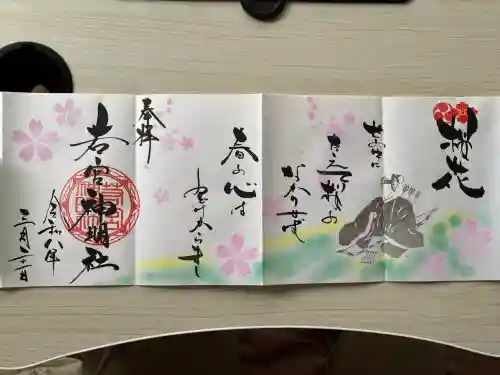 桜花
世の中に
たえて桜の
なかりせば
春の心は
のどけからまし
奉拝
若宮神明社
令和八年